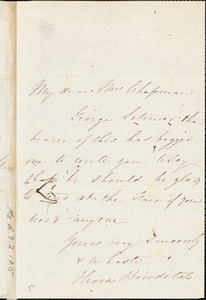 My dear Mrs Chapman
George Latimer the
bearer of this has begged
me to write you today
that he should be glad
to at the Fair if you
need anyone
Yours very sincerely
& in haste
Olivia Bowditch
5